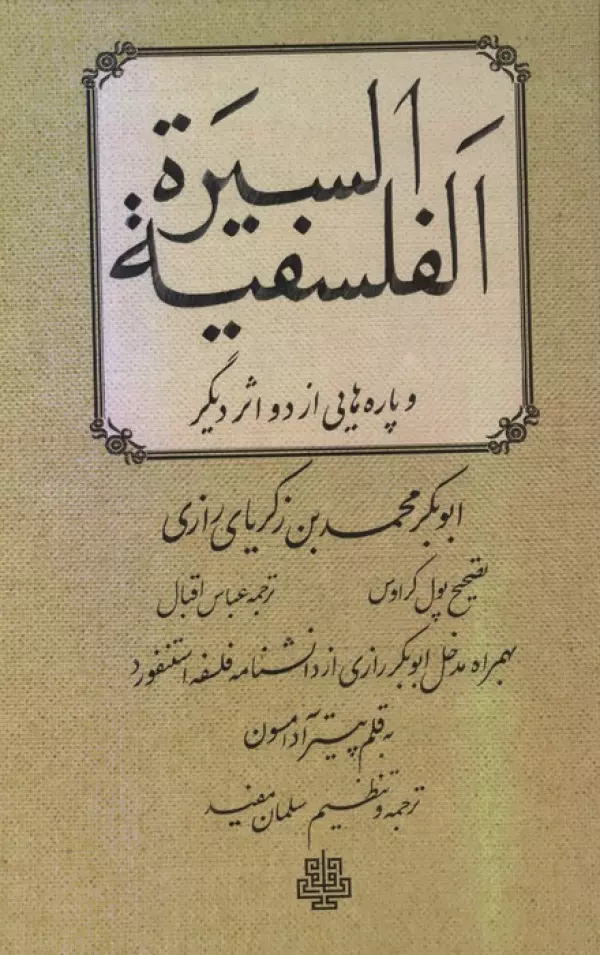 السيَرة
اَلفلسفية
و پاره‌هایی از دو اثر دیگر
ابوبکر محمد بن زکریای رازی
تصحیح پول کراوس ترجمه عباس اقبال
بهمراه مدخل ابوبکر رازی از دانشنامه فلسفه استنفورد
به قلم پیتر آدامسون
ترجمه و تنظیم سلمان مفید